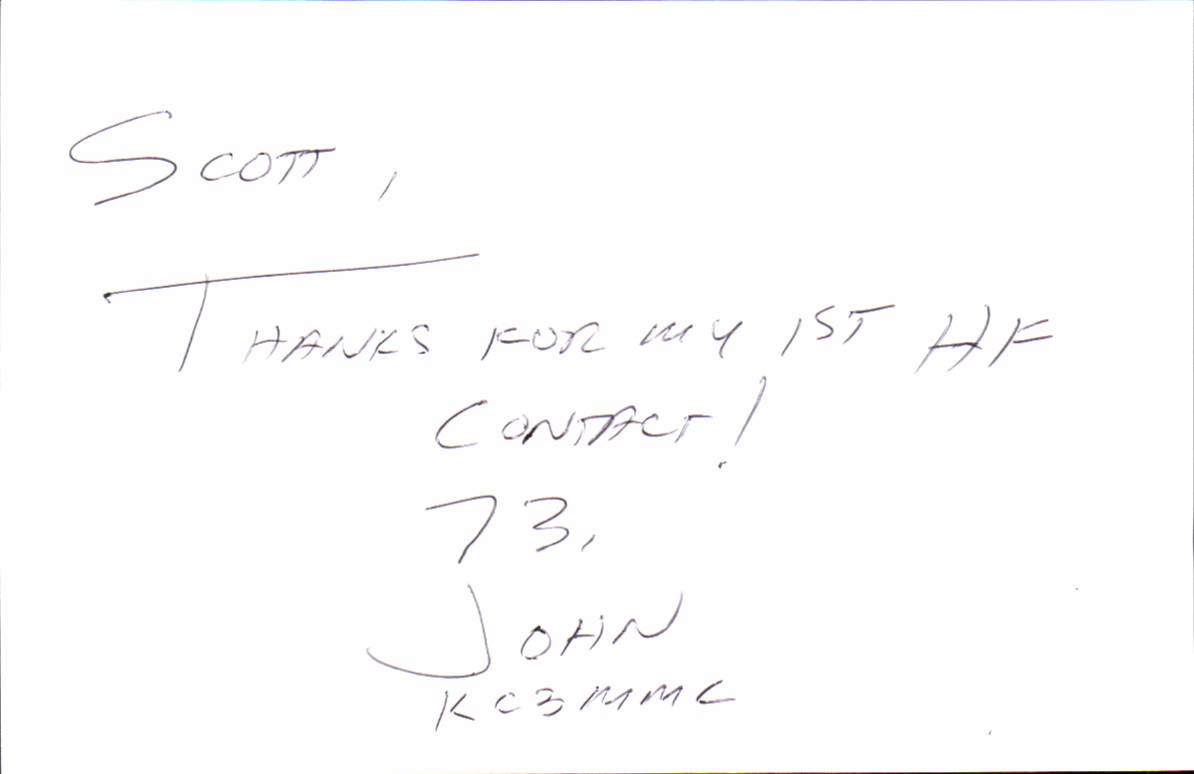 SCOTT,
THANKS FOR MY 1ST HF
CONTACT!
73,
JOHN
KC3MMC